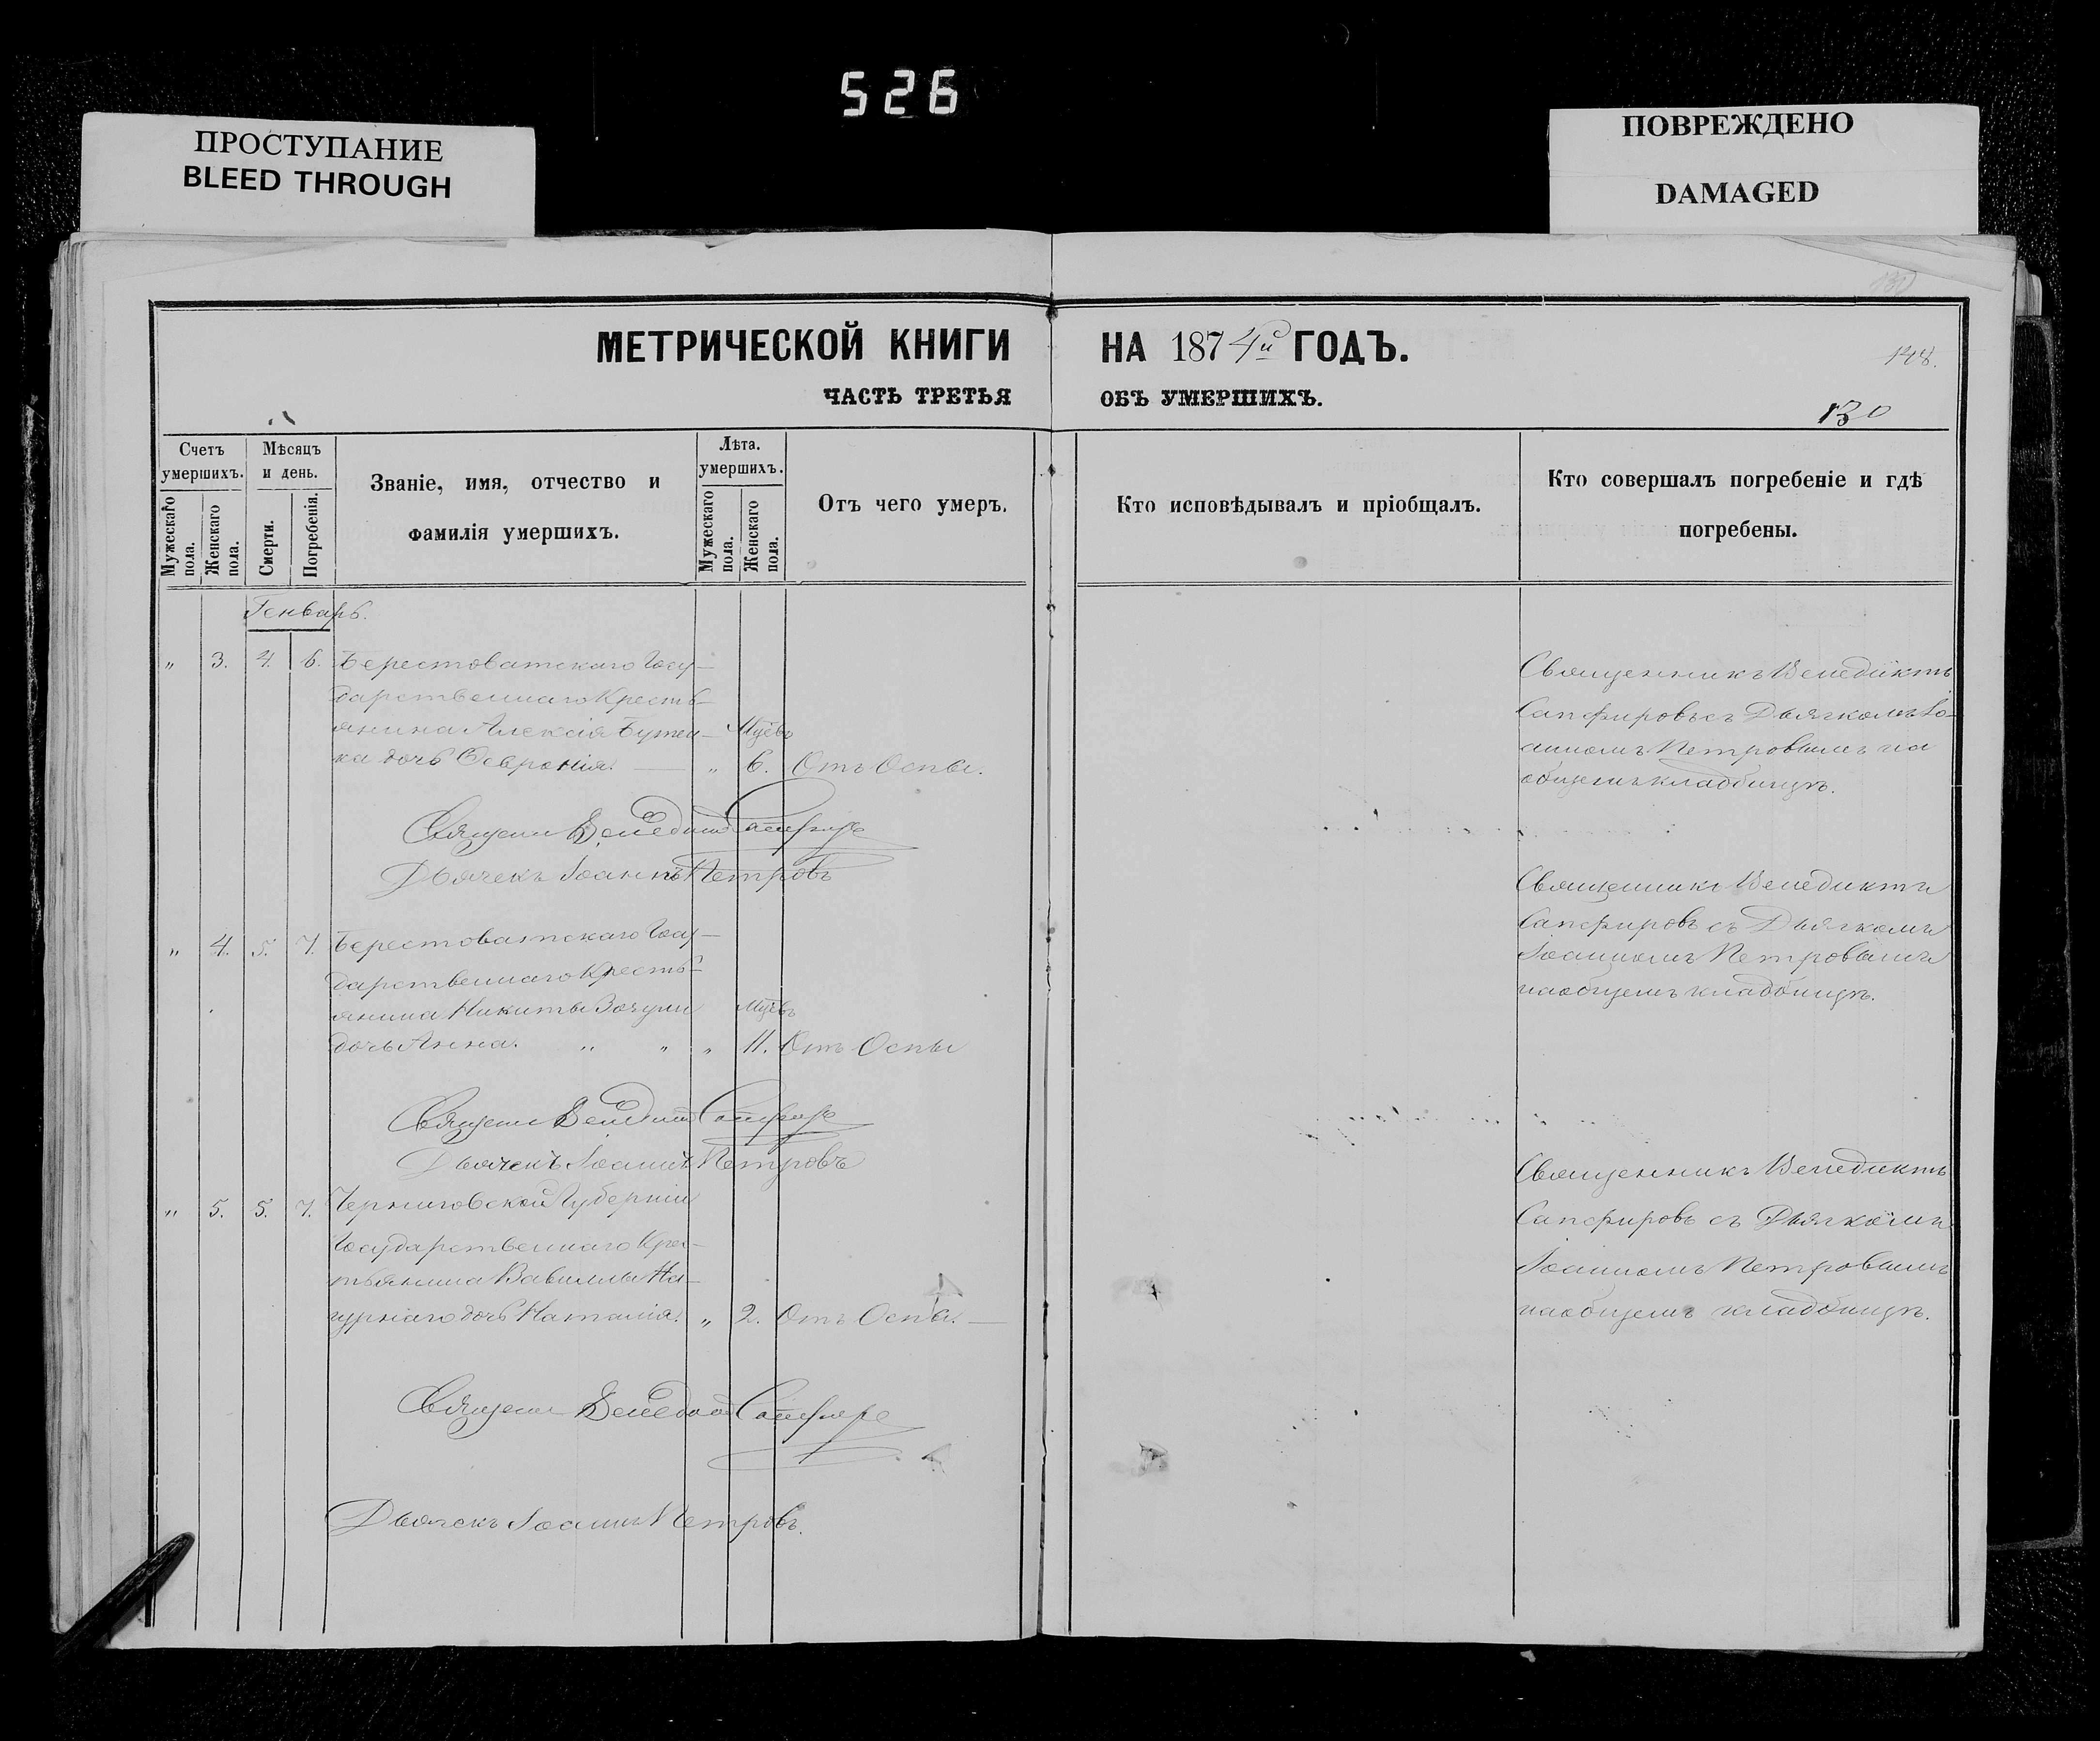 526
ПРОСТУПАНИЕ
BLEED THROUGH
ПОВРЕЖДЕНО
DAMAGED
МЕТРИЧЕСКОЙ КНИГИ НА 1874й ГОДЪ.
ЧАСТЬ ТРЕТЬЯ ОБЪ УМЕРШИХЪ.
130
Счетъ умершихъ.
Мужескаго пола.
Женскаго пола.
Мѣсяцъ и день.
Смерти.
Погребенія.
Званіе, имя, отчество и
фамилія умершихъ.
Лѣта. умершихъ.
Мужескаго пола.
Женскаго пола.
Отъ чего умеръ.
Кто исповѣдывалъ и пріобщалъ.
Кто совершалъ погребеніе и гдѣ
погребены.
Генварь.
„ 3. 4. 6. Берестоватскаго Госу-
дарственнаго Кресть-
янина Алексія
ка дочь Февронія. „ 6. Отъ Оспы.
Священникъ Венедиктъ
Сапфировъ съ Дьячкомъ Іо-
анномъ Петровымъ на
общемъ кладбищѣ.
Священ Венедиктъ Сапфировъ
Дьячекъ Іоаннъ Петровъ
„ 4. 5. 7. Берестоватскаго Госу-
дарственнаго Кресть-
янина Никиты
дочь Анна. „ „ „ 11. Отъ Оспы
Священникъ Венедиктъ
Сапфировъ съ Дьячкомъ
Іоанномъ Петровымъ
на общемъ кладбищѣ.
Священ Венедиктъ Сапфировъ
Дьячекъ Іоаннъ Петровъ
„ 5. 5. 7. Черниговской Губерніи
Государственнаго Крес-
тьянина Вавилы На-
дочь Наталія. „ 2. Отъ Оспы.
Священникъ Венедиктъ
Сапфировъ съ Дьячкомъ
Іоанномъ Петровымъ
на общемъ кладбищѣ.
Священ Венедиктъ Сапфировъ
Дьячекъ Іоаннъ Петровъ.